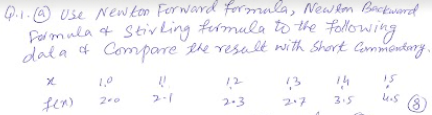 Q.1. (a) Use Newton Forward formula, Newton Backward
Formula & Stirling formula to the following
data & Compare the result with Short Commentary.
x 1.0 1.1 1.2 1.3 1.4 1.5
f(x) 2.0 2.1 2.3 2.7 3.5 4.5 (8)